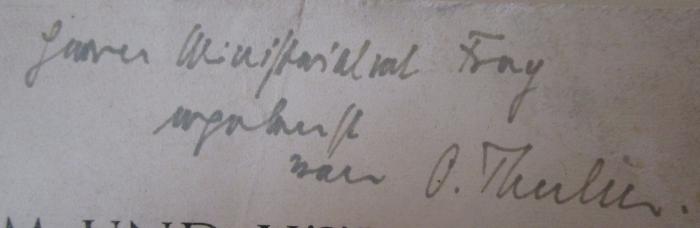 Herrn Ministerialrat Frey
ergebenst
von O. Thulin.
M UND